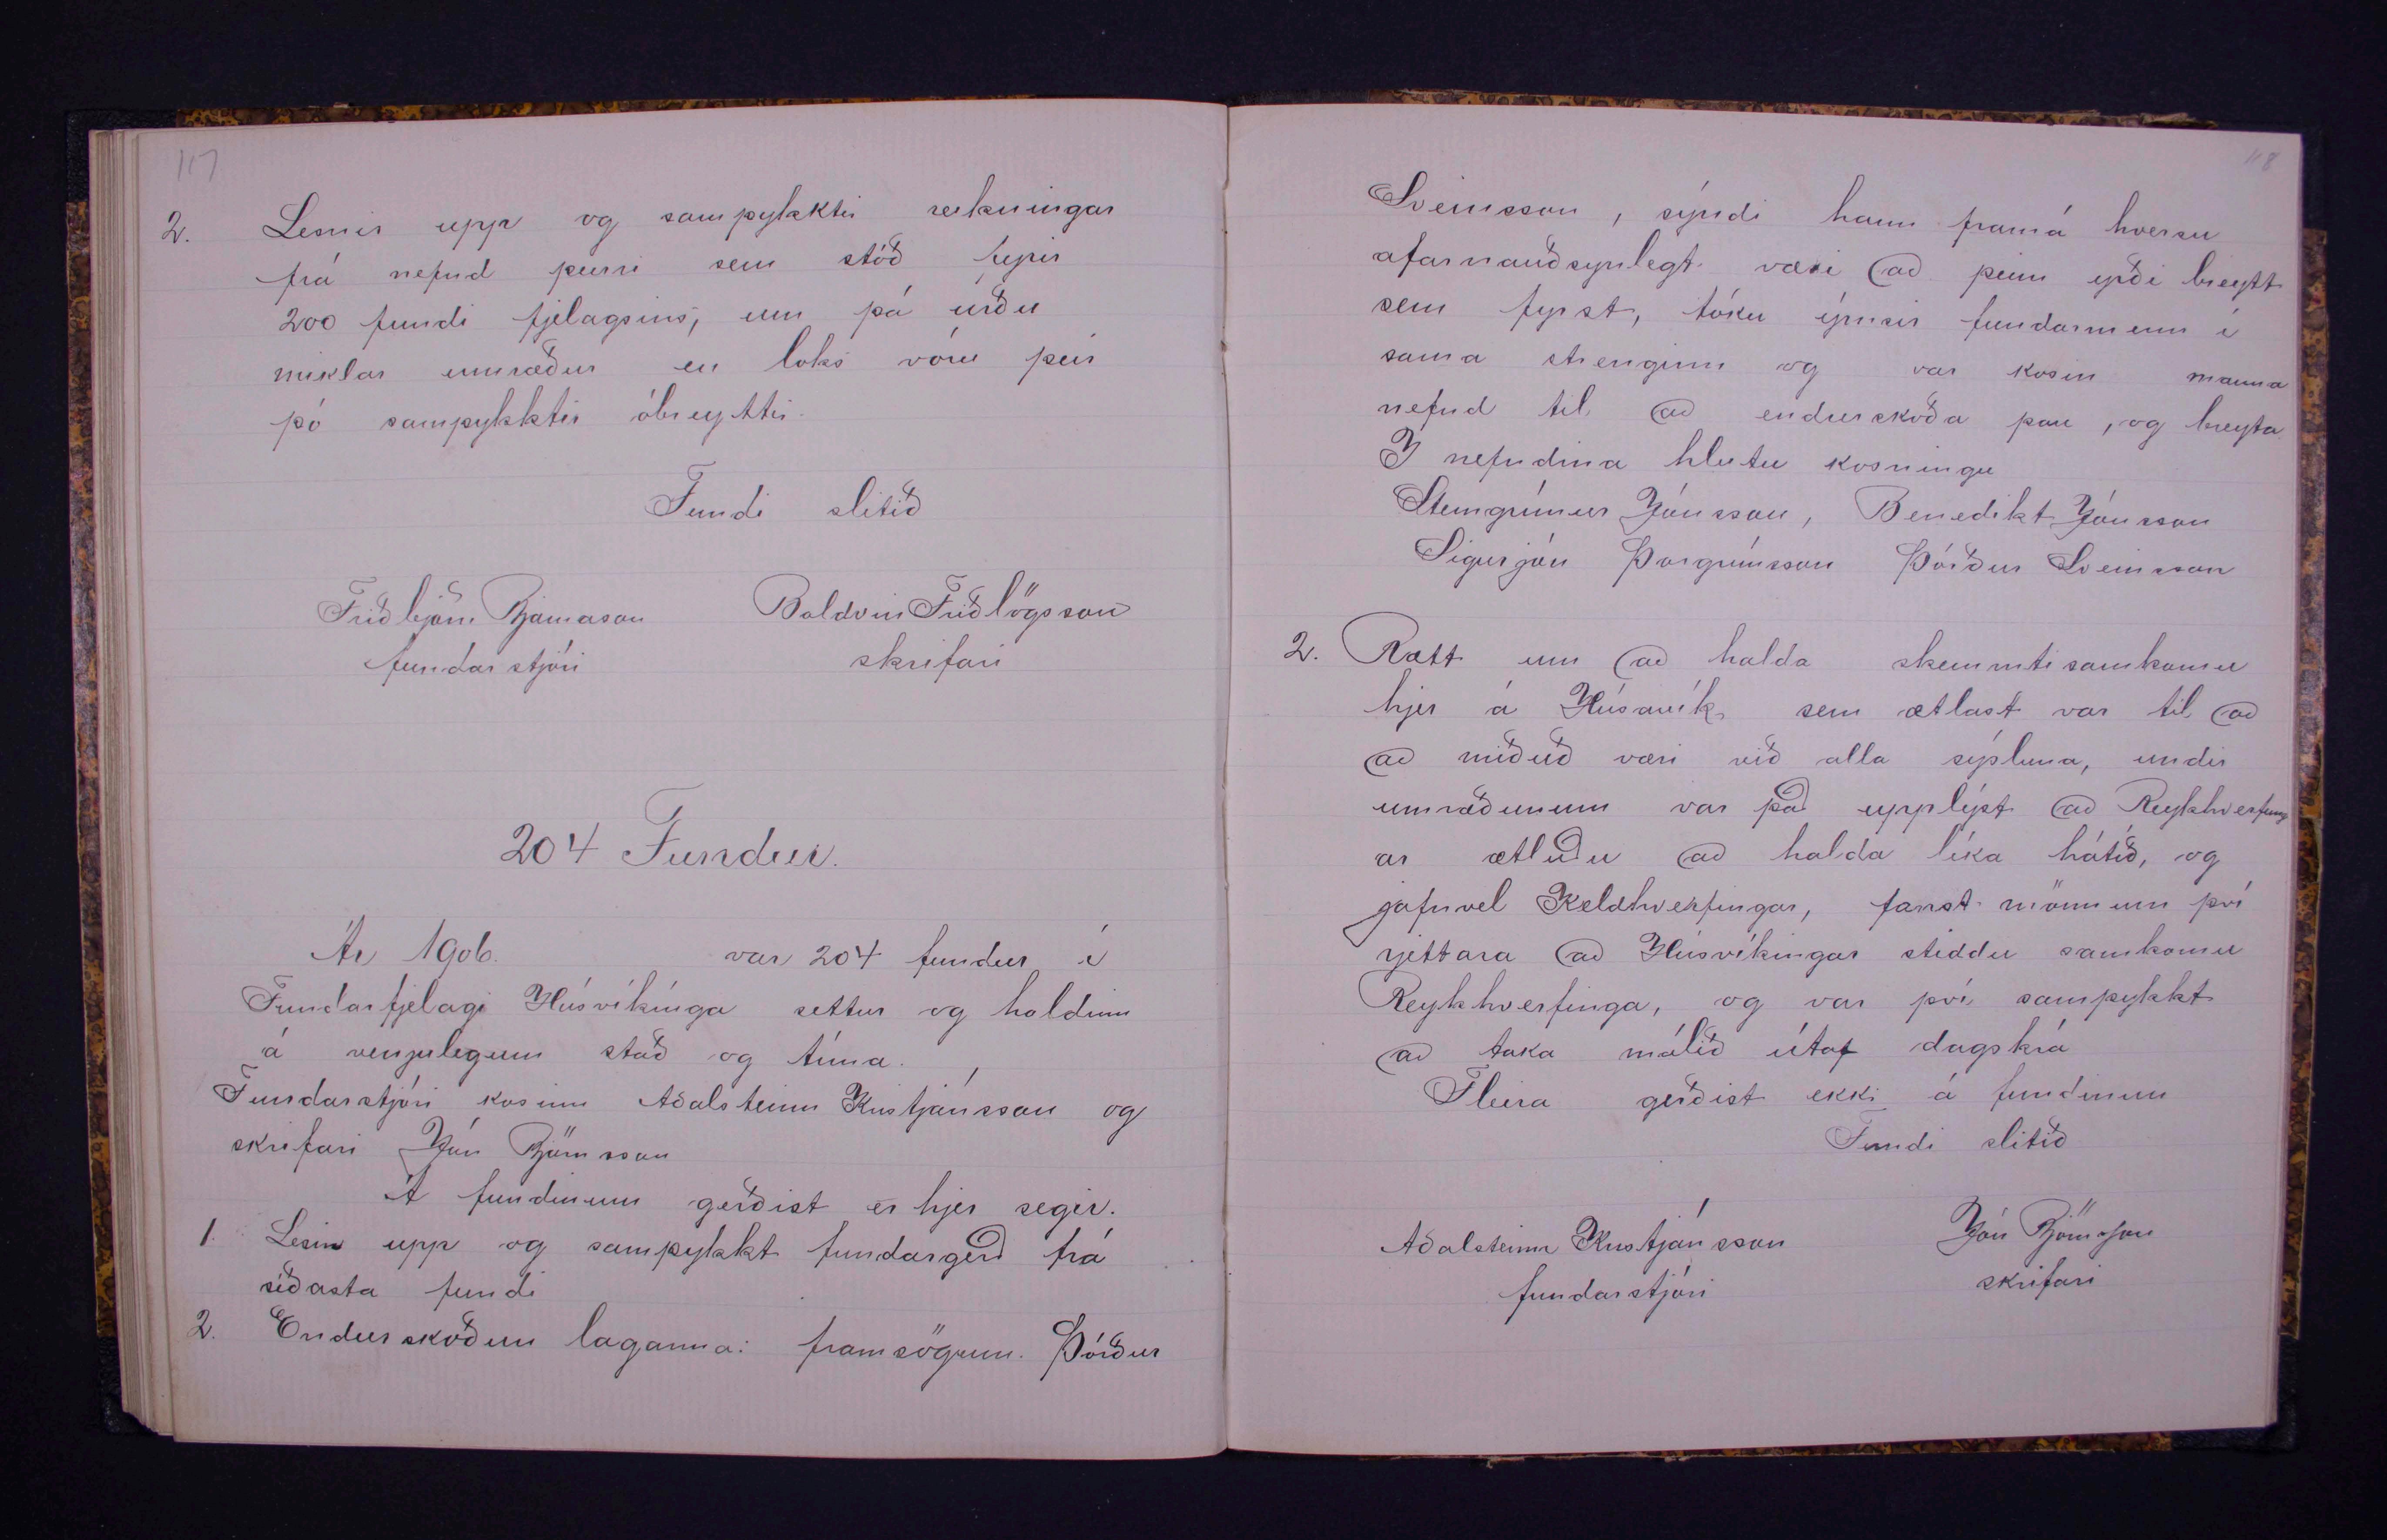 117
2. Lesnir upp og samþykktir reikningar
frá nefnd þeirri sem stóð fyrir
200 fundi fjelagsins, um þá urðu
miklar umræður en loks vóru þeir
þó samþykktir óbreyttir.
Fundi slitið
Friðbjörn Bjarnason Baldvin Friðlögsson
fundarstjóri skrifari
204 Fundur.
Ár 1906. var 204 fundur í
Fundarfjelagi Húsvíkinga settur og haldinn
á venjulegum stað og tíma.
Fundarstjóri kosinn Aðalsteinn Kristjánsson og
skrifari Jón Björnsson
Á fundinum gerðist er hjer segir.
1. Lesin upp og samþykkt fundargerð frá
síðasta fundi
2. Endurskoðun laganna: framsögum. Þórður
118
Sveinsson, sýndi hann framá hversu
afarnauðsynlegt væri að þeim yrði breytt
sem fyrst, tóku ýmsir fundarmenn í
sama strenginn og var kosin manna
nefnd til að endurskoða þau, og breyta
I nefndina hlutu kosningu
Steingrímur Jónsson, Benedikt Jónsson
Sigurjón Þorgrímsson Þórður Sveinsson
2. Rætt um að halda skemmtisamkomu
hjer á Húsavík sem ætlast var til að
að miðuð væri við alla sýsluna, undir
umræðunum var það upplýst að Reykhverfing
ar ætluðu að halda líka hátíð, og
jafnvel Keldhverfingar, fanst mönnum því
rjettara að Húsvíkingar stiddu samkomu
Reykhverfinga, og var því samþykkt
að taka málið útaf dagskrá
Fleira gerðist ekki á fundinum
Fundi slitið
Aðalsteinn Kristjánsson Jón Björnsson
fundarstjóri skrifari